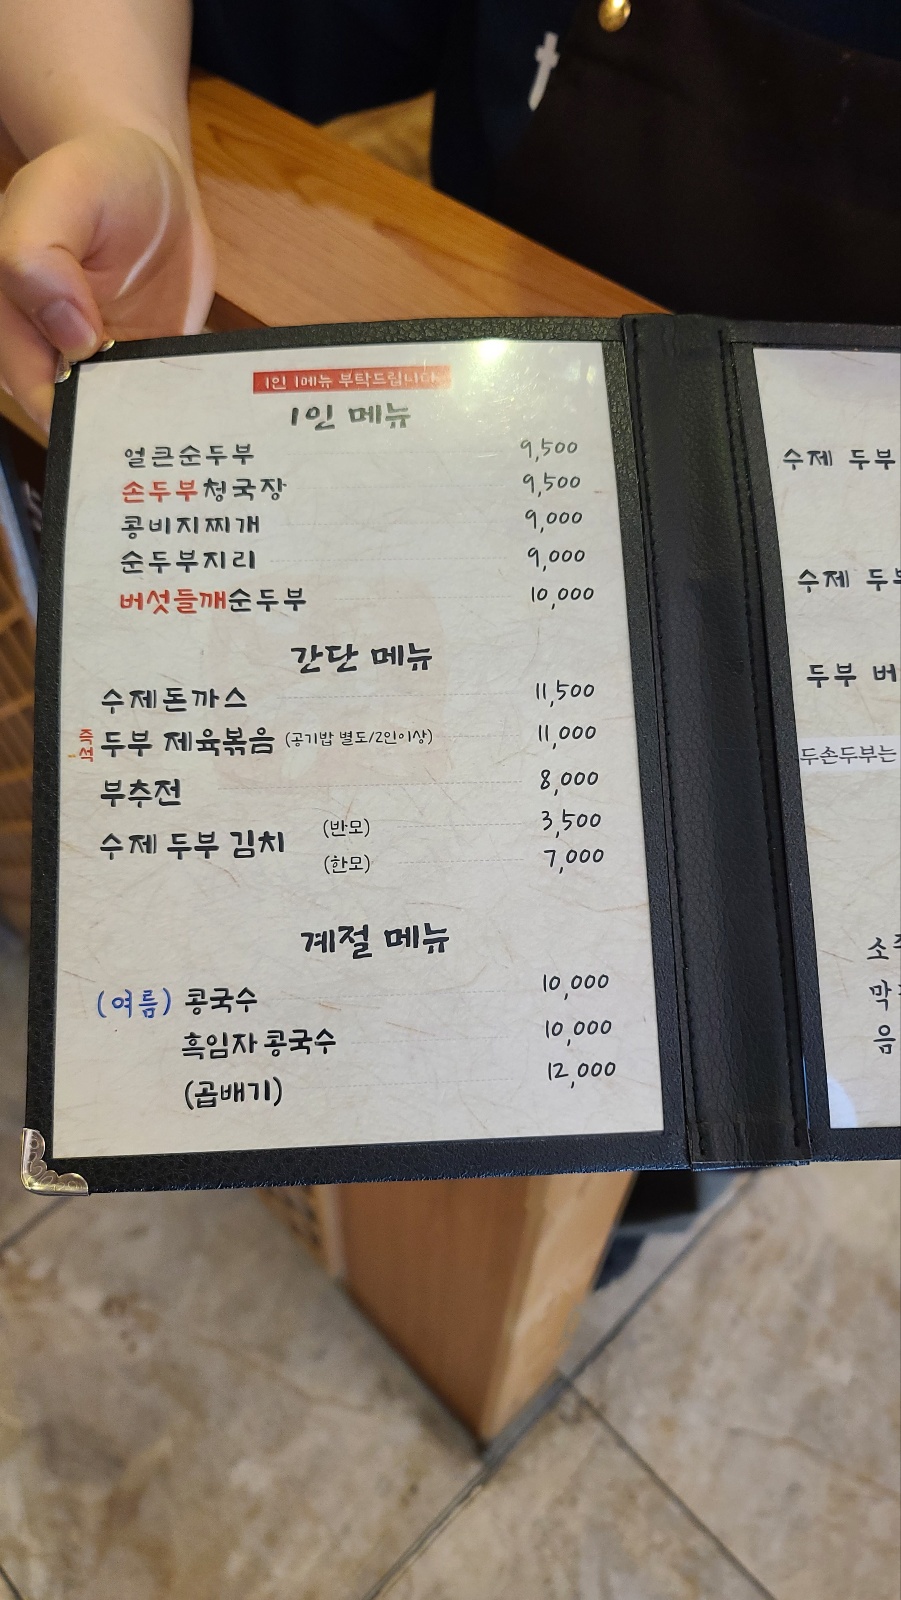 1인 1메뉴 부탁드립니다
1인 메뉴
얼큰순두부 9,500
손두부청국장 9,500
콩비지찌개 9,000
순두부지리 9,000
버섯들깨순두부 10,000
간단 메뉴
수제돈까스 11,500
즉석 두부 제육볶음 (공기밥 별도/2인이상) 11,000
부추전 8,000
수제 두부 김치 (반모) 3,500
(한모) 7,000
계절 메뉴
(여름) 콩국수 10,000
흑임자 콩국수 10,000
(곱배기) 12,000
수제 두부
수제 두부
두부 버
두손두부는
소
막
음